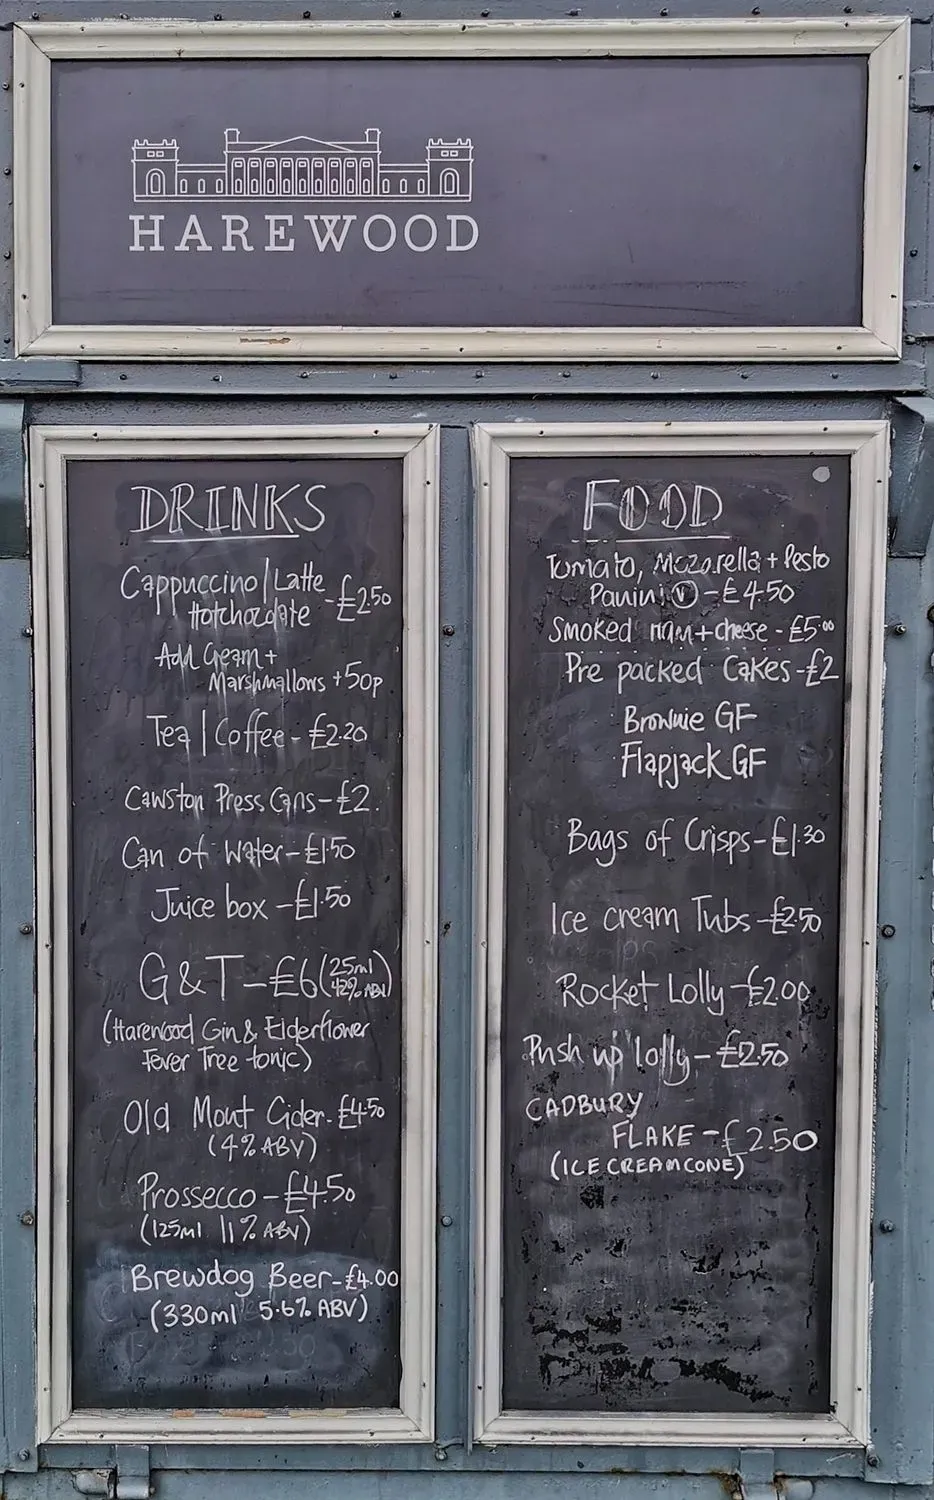 HAREWOOD
DRINKS
Cappuccino/Latte
Hotchocolate - £2.50
Add Cream +
Marshmallows +50p
Tea/Coffee - £2.20
Cawston Press Cans - £2.
Can of water - £1.50
Juice box - £1.50
G & T - £6 (25ml 42% ABV)
(Harewood Gin & Elderflower
Fever Tree tonic)
Old Mout Cider. £4.50
(4% ABV)
Prossecco - £4.50
(125ml 11% ABV)
Brewdog Beer - £4.00
(330ml 5.6% ABV)
FOOD
Tomato, Mozarella + Pesto
Panini (V) - £4.50
Smoked ham + cheese - £5.00
Pre packed Cakes - £2
Brownie GF
Flapjack GF
Bags of Crisps - £1.30
Ice cream Tubs - £2.50
Rocket Lolly - £2.00
Push up lolly - £2.50
CADBURY
FLAKE - £2.50
(ICE CREAM CONE)